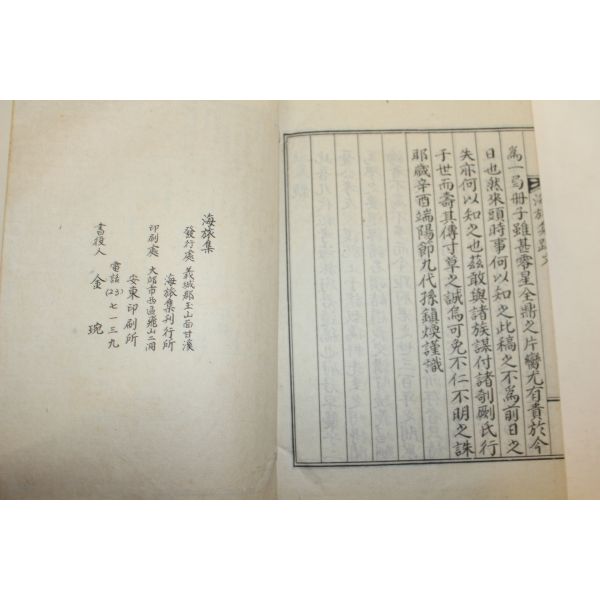 海旅集跋文
爲一局冊子雖甚零星全鼎之片臠尤有貴於今
日也然來頭時事何以知之此稿之不爲前日之
失亦何以知之也玆敢與諸族謀付諸剞劂氏行
于世而壽其傳寸草之誠爲可免不仁不明之誅
耶歲辛酉端陽節九代孫鎭煥謹識
海旅集
發行處 義城郡玉山面甘溪
海旅集刊行所
印刷處 大邱市西區飛山二洞
安東印刷所
電話(23)七一三九
書役人 金 琬